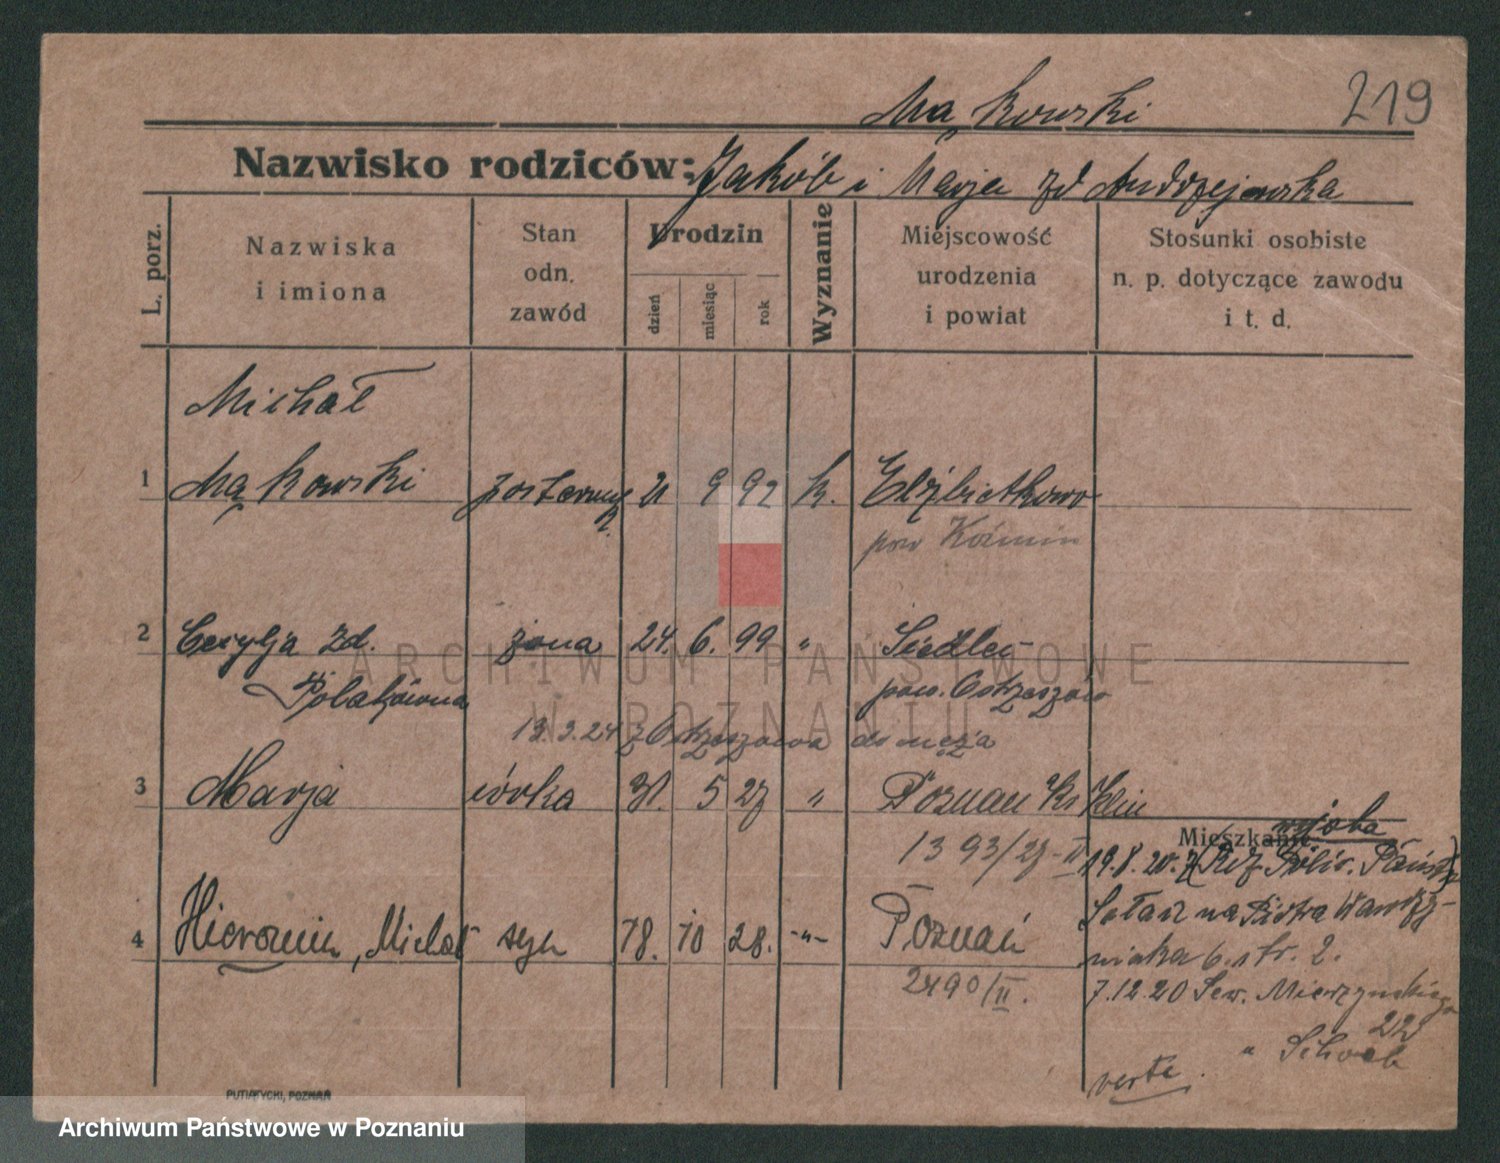 Mąkowski
219
Nazwisko rodziców: Jakób i Marja zd Andrzejewska
L. porz.
Nazwiska
i imiona
Stan
odn.
zawód
Urodzin
dzień
miesiąc
rok
Wyznanie
Miejscowość
urodzenia
i powiat
Stosunki osobiste
n. p. dotyczące zawodu
i t. d.
Michał
1 Mąkowski 21 9 92 k. Elżbietkowo
pow Koźmin
2 Cecylja zd. żona 24. 6. 99 " Siedlec
Polakówna pow. Ostrzeszów
13.3.24 z Ostrzeszowa do męża
3 Marja córka 31. 5 27 " Poznań
1393/27-II
Mieszkanie
19.8.20. z
Sołacz na Piotra Wawrzy-
niaka 6. str. 2.
4 Hieronim, Michał syn 18. 10 28. -"- Poznań
2490/II.
7.12.20 Sew. Mielżyńskiego
22
" Schwab
verte.
PUTIATYCKI, POZNAŃ
ARCHIWUM PAŃSTWOWE
W POZNANIU
Archiwum Państwowe w Poznaniu